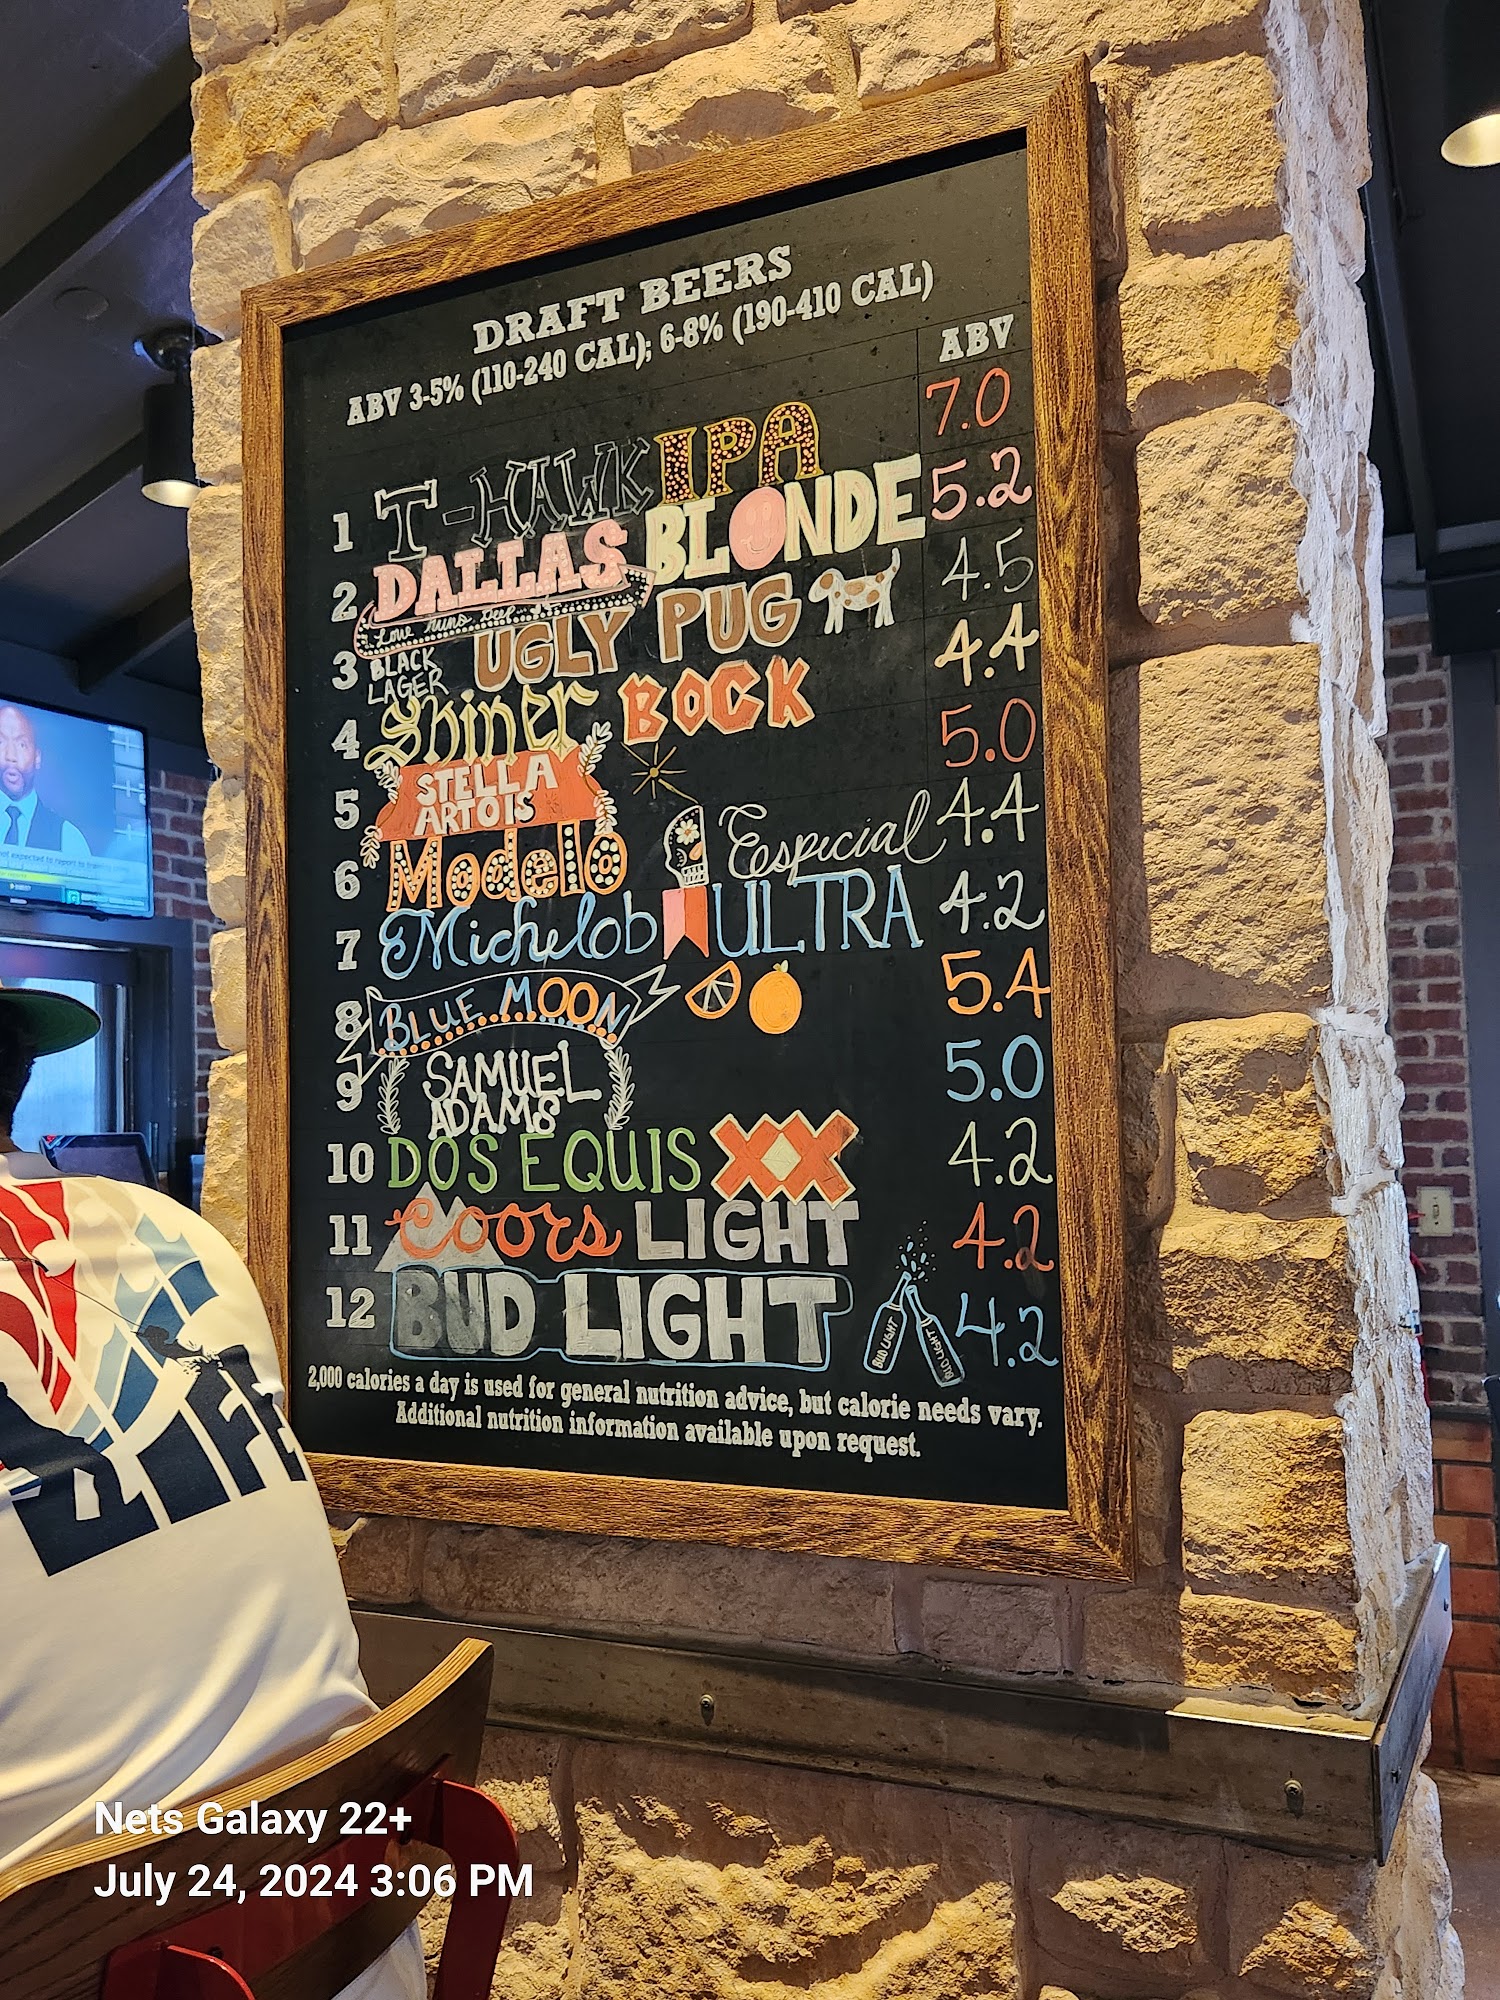 DRAFT BEERS
ABV 3-5% (110-240 CAL); 6-8% (190-410 CAL)
ABV
1 T-HAWK IPA 7.0
2 DALLAS BLONDE 5.2
Love runs deep
3 BLACK LAGER UGLY PUG 4.5
4 Shiner BOCK 4.4
5 STELLA ARTOIS 5.0
6 Modelo Especial 4.4
7 Michelob ULTRA 4.2
8 BLUE MOON 5.4
9 SAMUEL ADAMS 5.0
10 DOS EQUIS XX 4.2
11 Coors LIGHT 4.2
12 BUD LIGHT 4.2
BUD LIGHT
BUD LIGHT
2,000 calories a day is used for general nutrition advice, but calorie needs vary.
Additional nutrition information available upon request.
Nets Galaxy 22+
July 24, 2024 3:06 PM